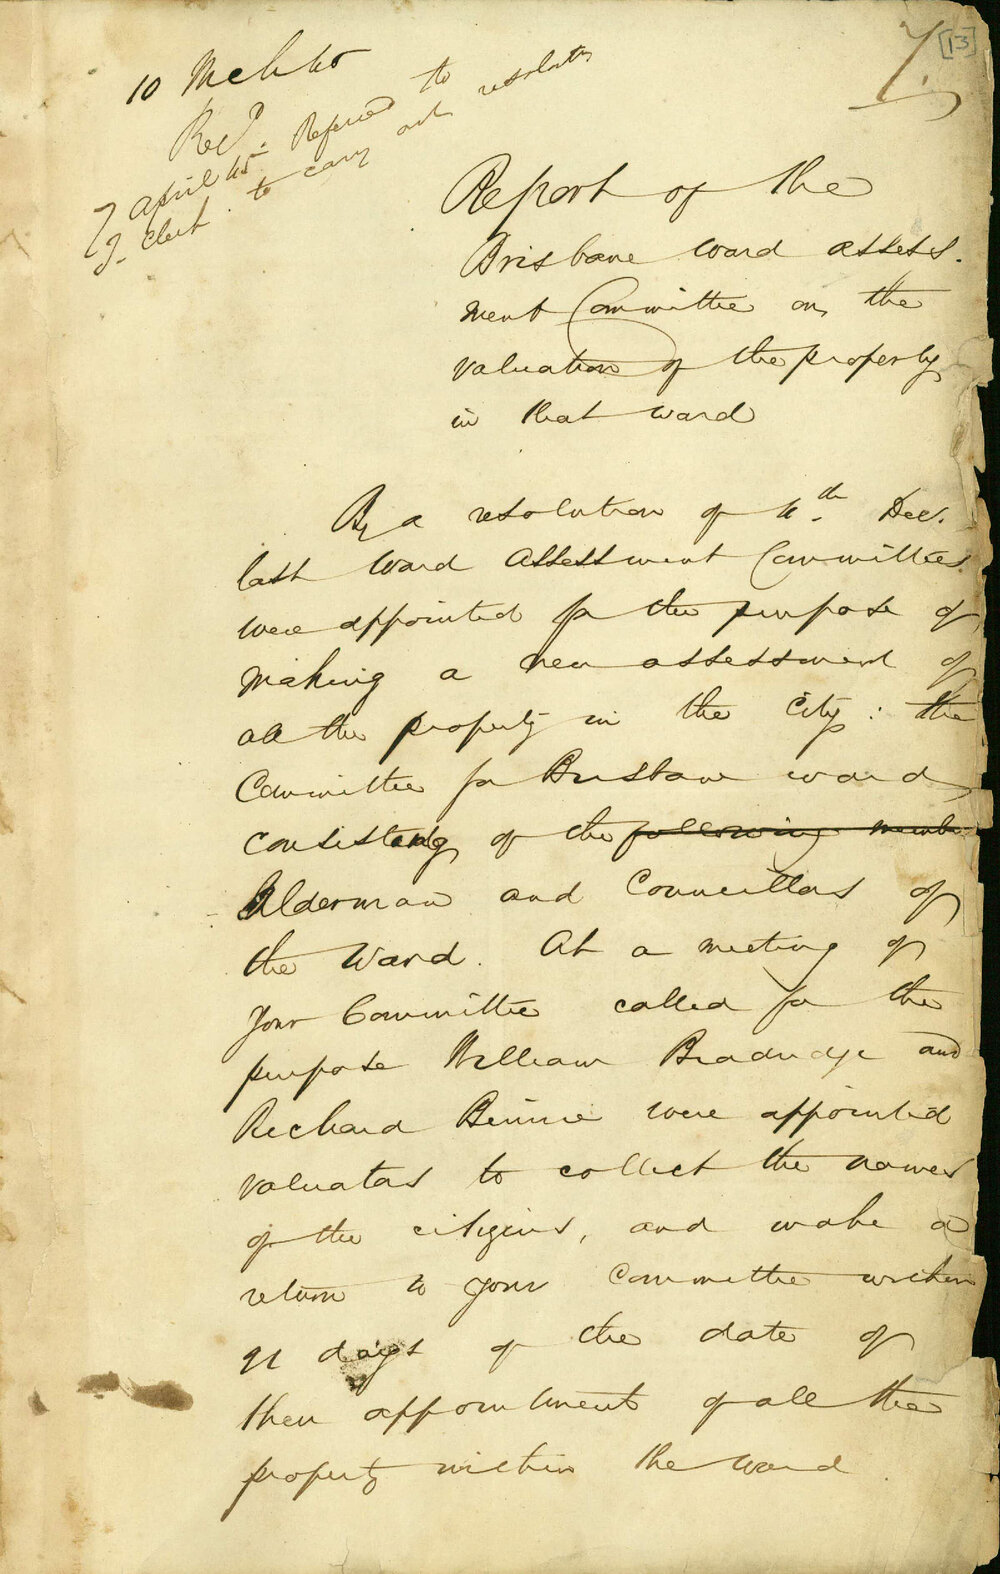 7.
[13]
10 Mch 45
Recd.
7 April 45. Referred to
T. Clerk to carry out resolution
Report of the
Brisbane Ward Assess-
ment Committee on the
valuation of the property
in that ward
By a resolution of 4th. Dec.
last Ward Assessment Committees
were appointed for the purpose of
making a new assessment of
all the property in the City: the
Committee for Brisbane ward
consisting of the following membe
Alderman and Councillors of
the Ward. At a meeting of
your Committee called for the
purpose William Beadudge and
Richard Binnie were appointed
valuators to collect the names
of the citizens, and make a
return to your Committee within
21 days of the date of
their appointment of all the
property within the ward.